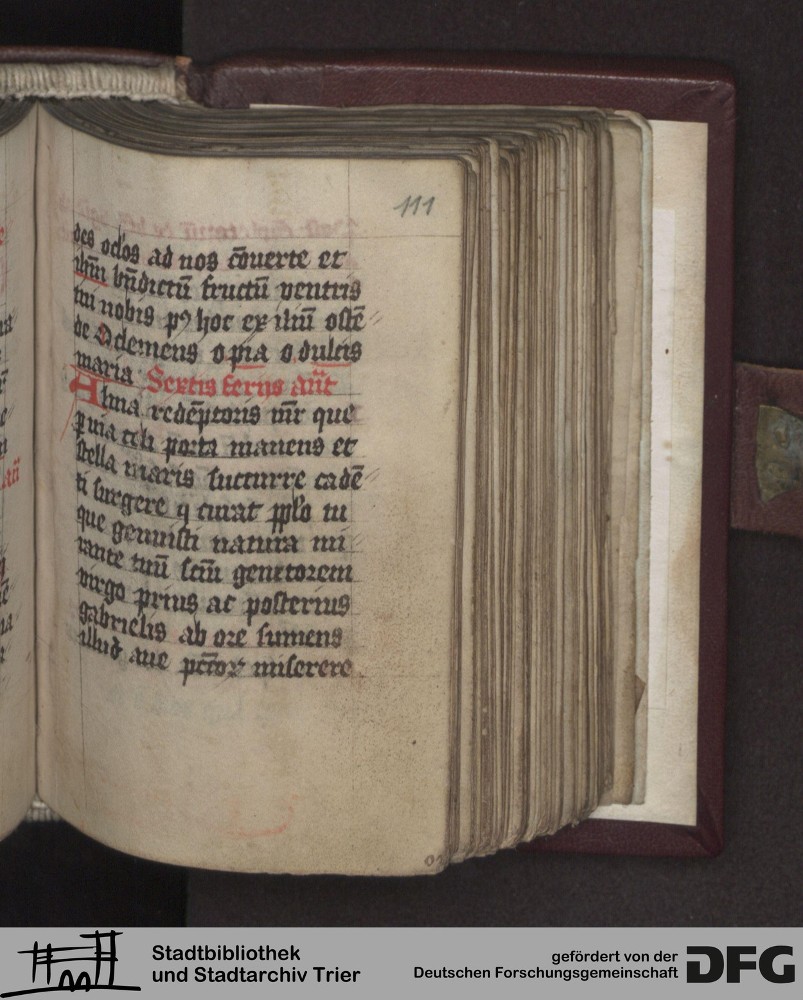 111
des oclos ad nos cōuerte et
ihm̄ bn̄dictū fructū ventris
tui nobis pꝰ hoc exiliū ostē
de O clemens o pia o dulcis
maria Sextis ferijs an̄t
Alma redēptoris mr̄ que
ꝑuia celi porta manens et
stella maris succurre cadē
ti surgere q curat pplo tu
que genuisti natura mi
rante tuū scm̄ genitorem
virgo prius ac posterius
gabrielis ab ore sumens
illud aue pctōꝝ miserere
Stadtbibliothek
und Stadtarchiv Trier
gefördert von der
Deutschen Forschungsgemeinschaft
DFG